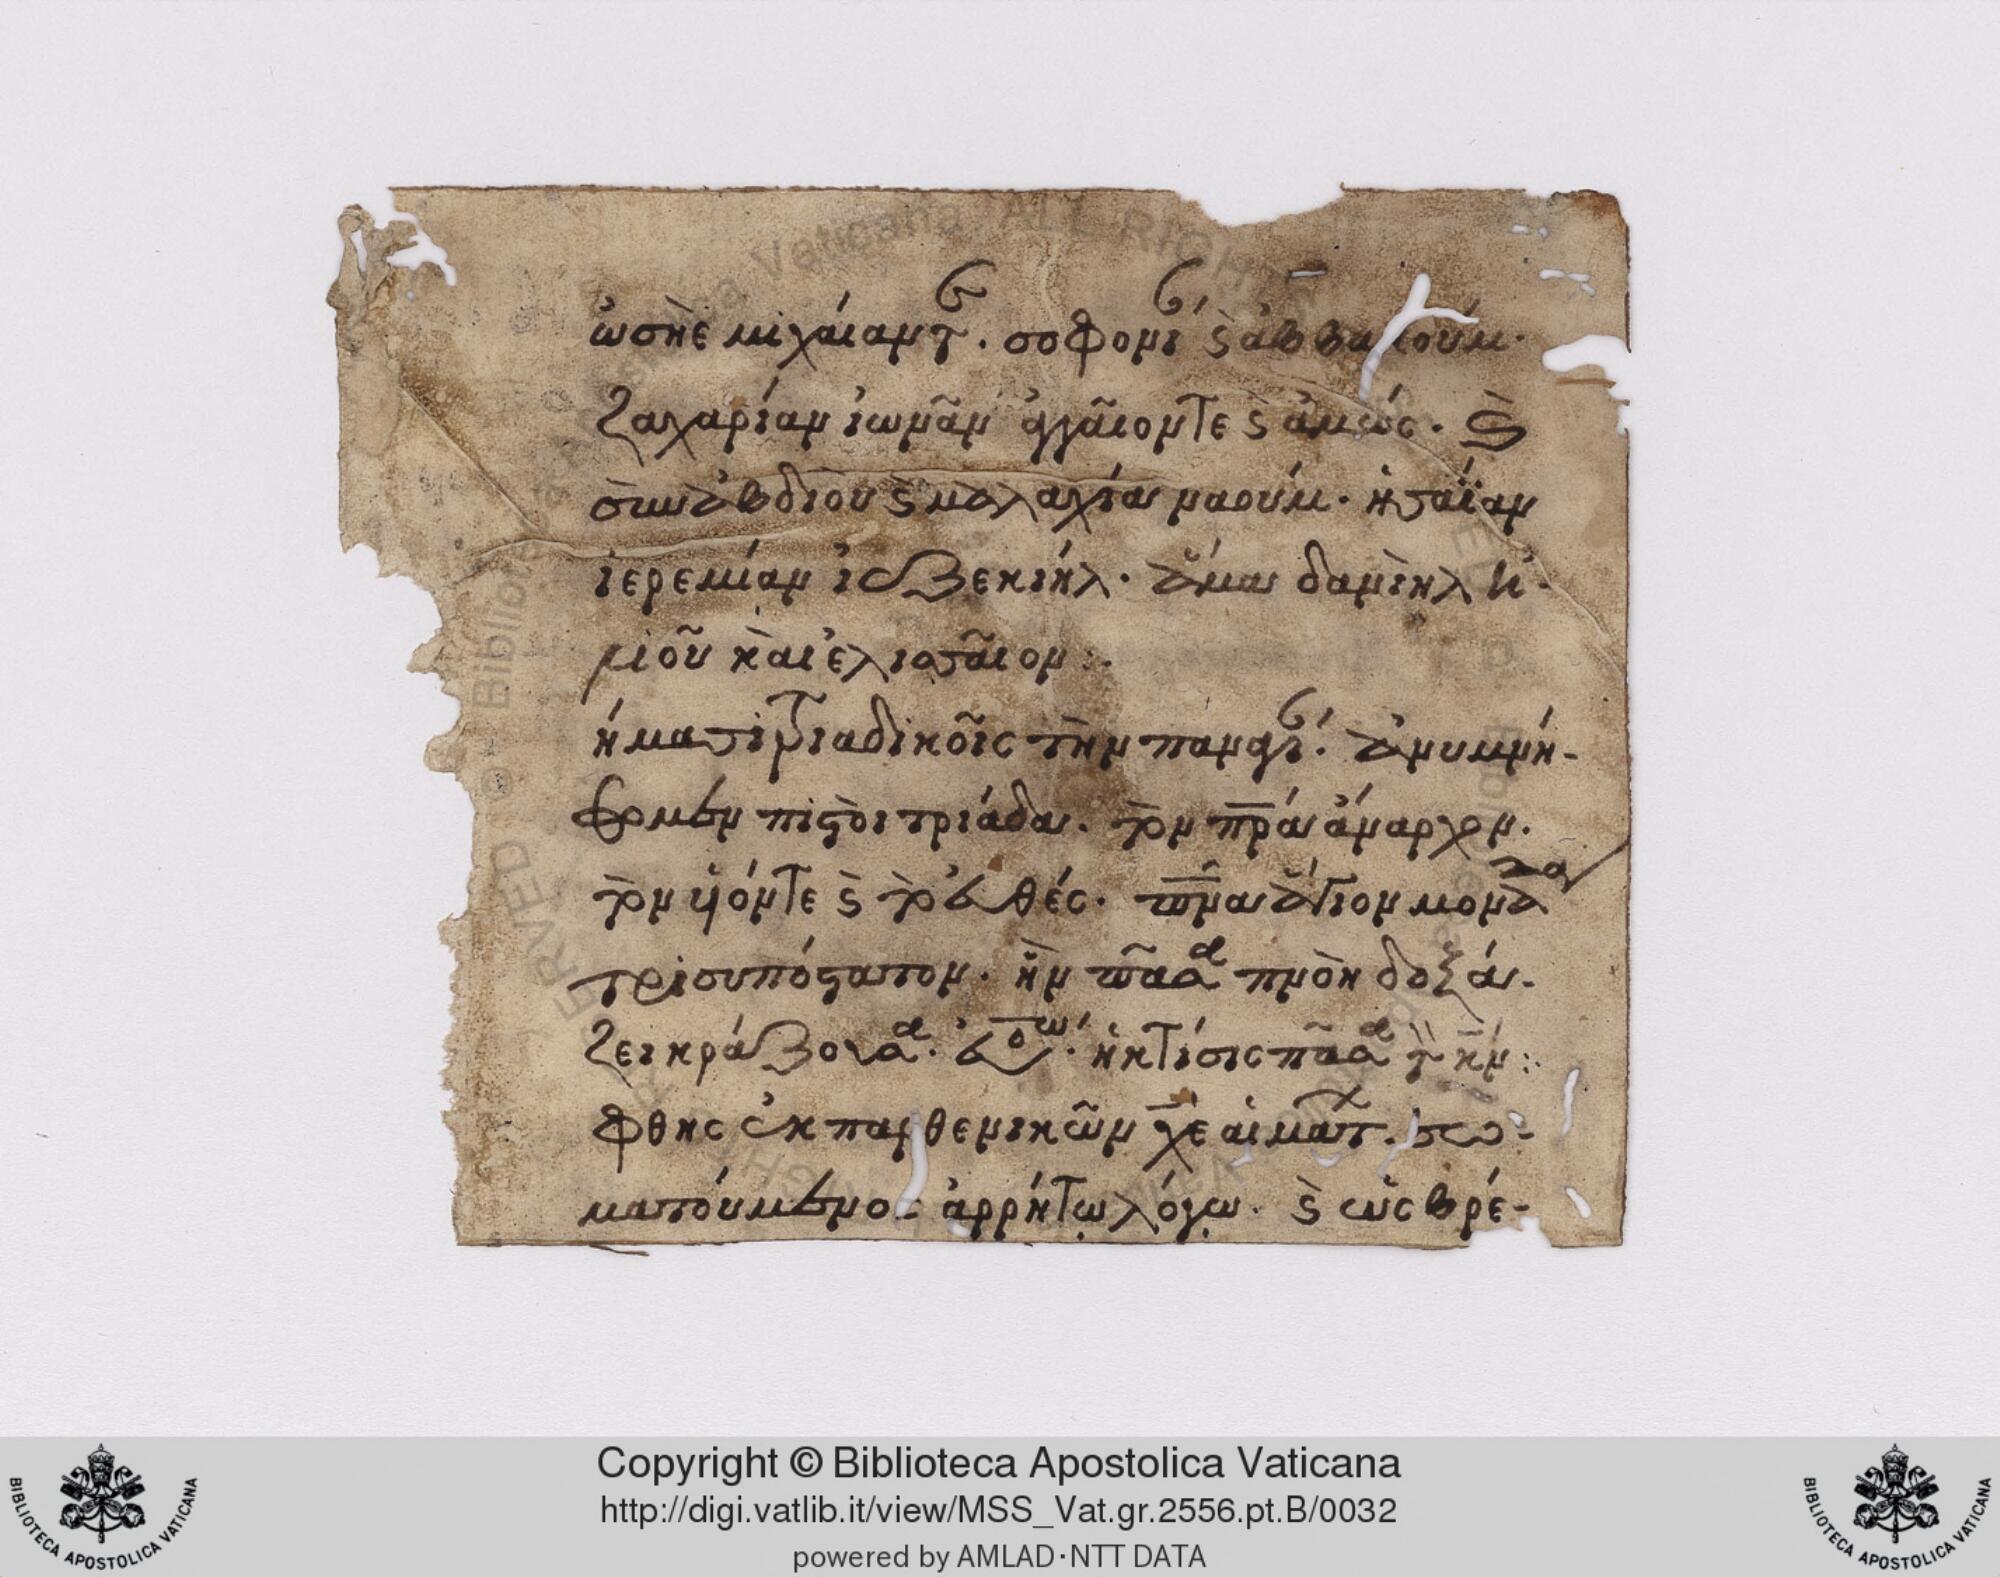 ὠσηὲ μιχαίαν τ. σοφονί ϛ ἀββακούμ·
ζαχαρίαν ἰωνᾶν ἀγγαῖον τε ϛ ἀμώς· ϛ
σὺν ἀβδιοὺ ϛ μαλαχία ναούμ· ἡσαΐαν
ἱερεμίαν ἰεζεκιήλ· ἅμα δανιὴλ ἠ-
λιοῦ καὶ ἐλισσαῖον :·
ᾄσμασι τριαδικοῖς τὴν παναγί. ἀνυμνή-
σωμεν πιστοὶ τριάδα· τὸν πρα ἄναρχον·
τὸν υἱόν τε ϛ τὸ εὐθές· πνα ἅγιον μονάδα
τρισυπόστατον· ἣν πᾶσα πνοὴ δοξά-
ζει κράζουσα·
ἡ κτίσις πᾶσα τ κν :·
ὤφθης ἐκ παρθενικῶν χε αἱμάτ. σω-
ματούμενος ἀρρήτῳ λόγῳ· ϛ ὡς βρέ-
Copyright © Biblioteca Apostolica Vaticana
http://digi.vatlib.it/view/MSS_Vat.gr.2556.pt.B/0032
powered by AMLAD·NTT DATA
BIBLIOTECA APOSTOLICA VATICANA
BIBLIOTECA APOSTOLICA VATICANA